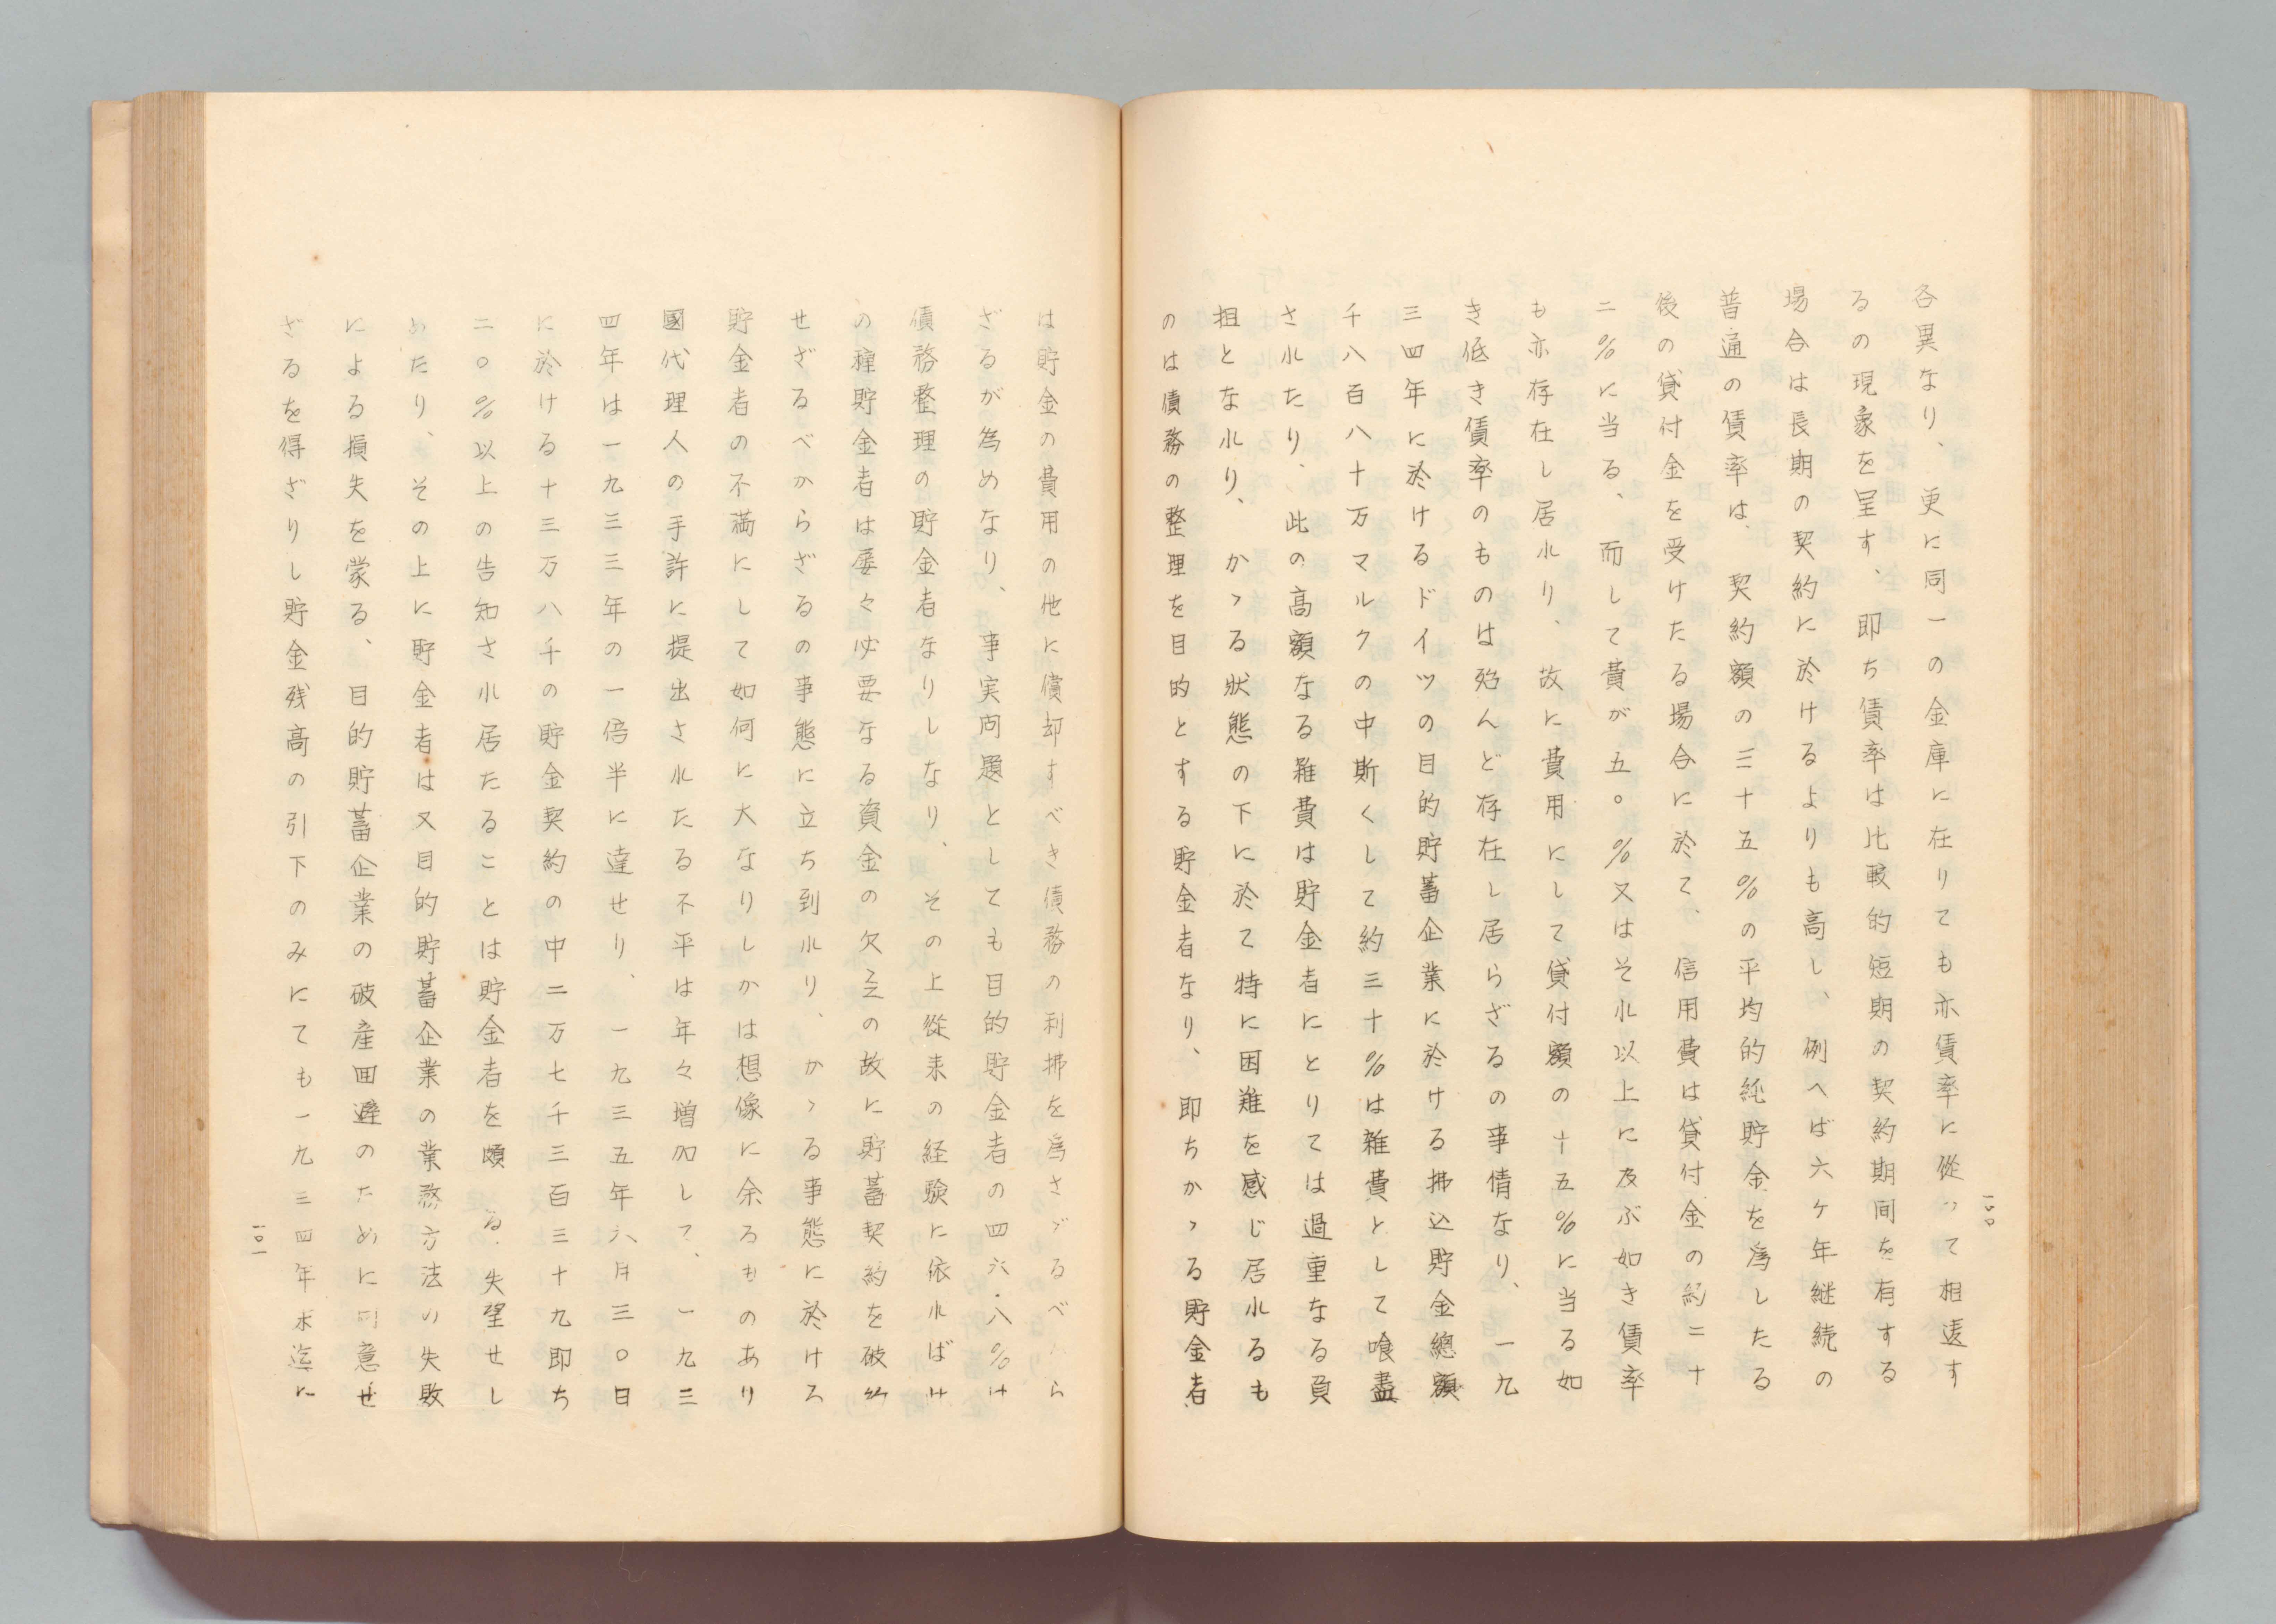 一〇〇
各異なり、更に同一の金庫に在りても亦賃率に從って相違す
るの現象を呈す、即ち賃率は比較的短期の契約期间を有する
場合は長期の契約に於けるよりも高し、例へば六ヶ年継続の
普通の賃率は、契約額の三十五%の平均的純貯金を爲したる
後の貸付金を受けたる場合に於て、信用費は貸付金の約二十
二%に当る、而して費が五〇%又はそれ以上に及ぶ如き賃率
も亦存在し居れり、故に費用にして貸付額の十五%に当る如
き低き賃率のものは殆んど存在し居らざるの事情なり、一九
三四年に於けるドイツの目的貯蓄企業に於ける拂込貯金總額
千八百八十万マルクの中斯くして約三十%は雑費として喰盡
されたり、此の高額なる雑費は貯金者にとりては過重なる負
担となれり、かゝる狀態の下に於て特に困難を感じ居れるも
のは債務の整理を目的とする貯金者なり、即ちかゝる貯金者
は貯金の費用の他に償却すべき債務の利拂を爲さゞるべから
ざるが為めなり、事実问題としても目的貯金者の四六・八%は
債務整理の貯金者なりしなり、その上從来の経験に依ればは
の種貯金者は屡々必要なる資金の欠乏の故に貯蓄契約を破約
せざるべからざるの事態に立ち到れり、かゝる事態に於ける
貯金者の不満にして如何に大なりしかは想像に余るものあり
國代理人の手許に提出されたる不平は年々増加して、一九三
四年は一九三三年の一倍半に達せり、一九三五年六月三〇日
に於ける十三万八千の貯金契約の中二万七千三百三十九即ち
二〇%以上の告知され居たることは貯金者を頗る失望せし
めたり、その上に貯金者は又目的貯蓄企業の業務方法の失敗
による損失を蒙る、目的貯蓄企業の破産囬避のために同意せ
ざるを得ざりし貯金残高の引下のみにても一九三四年末迄に
一〇一